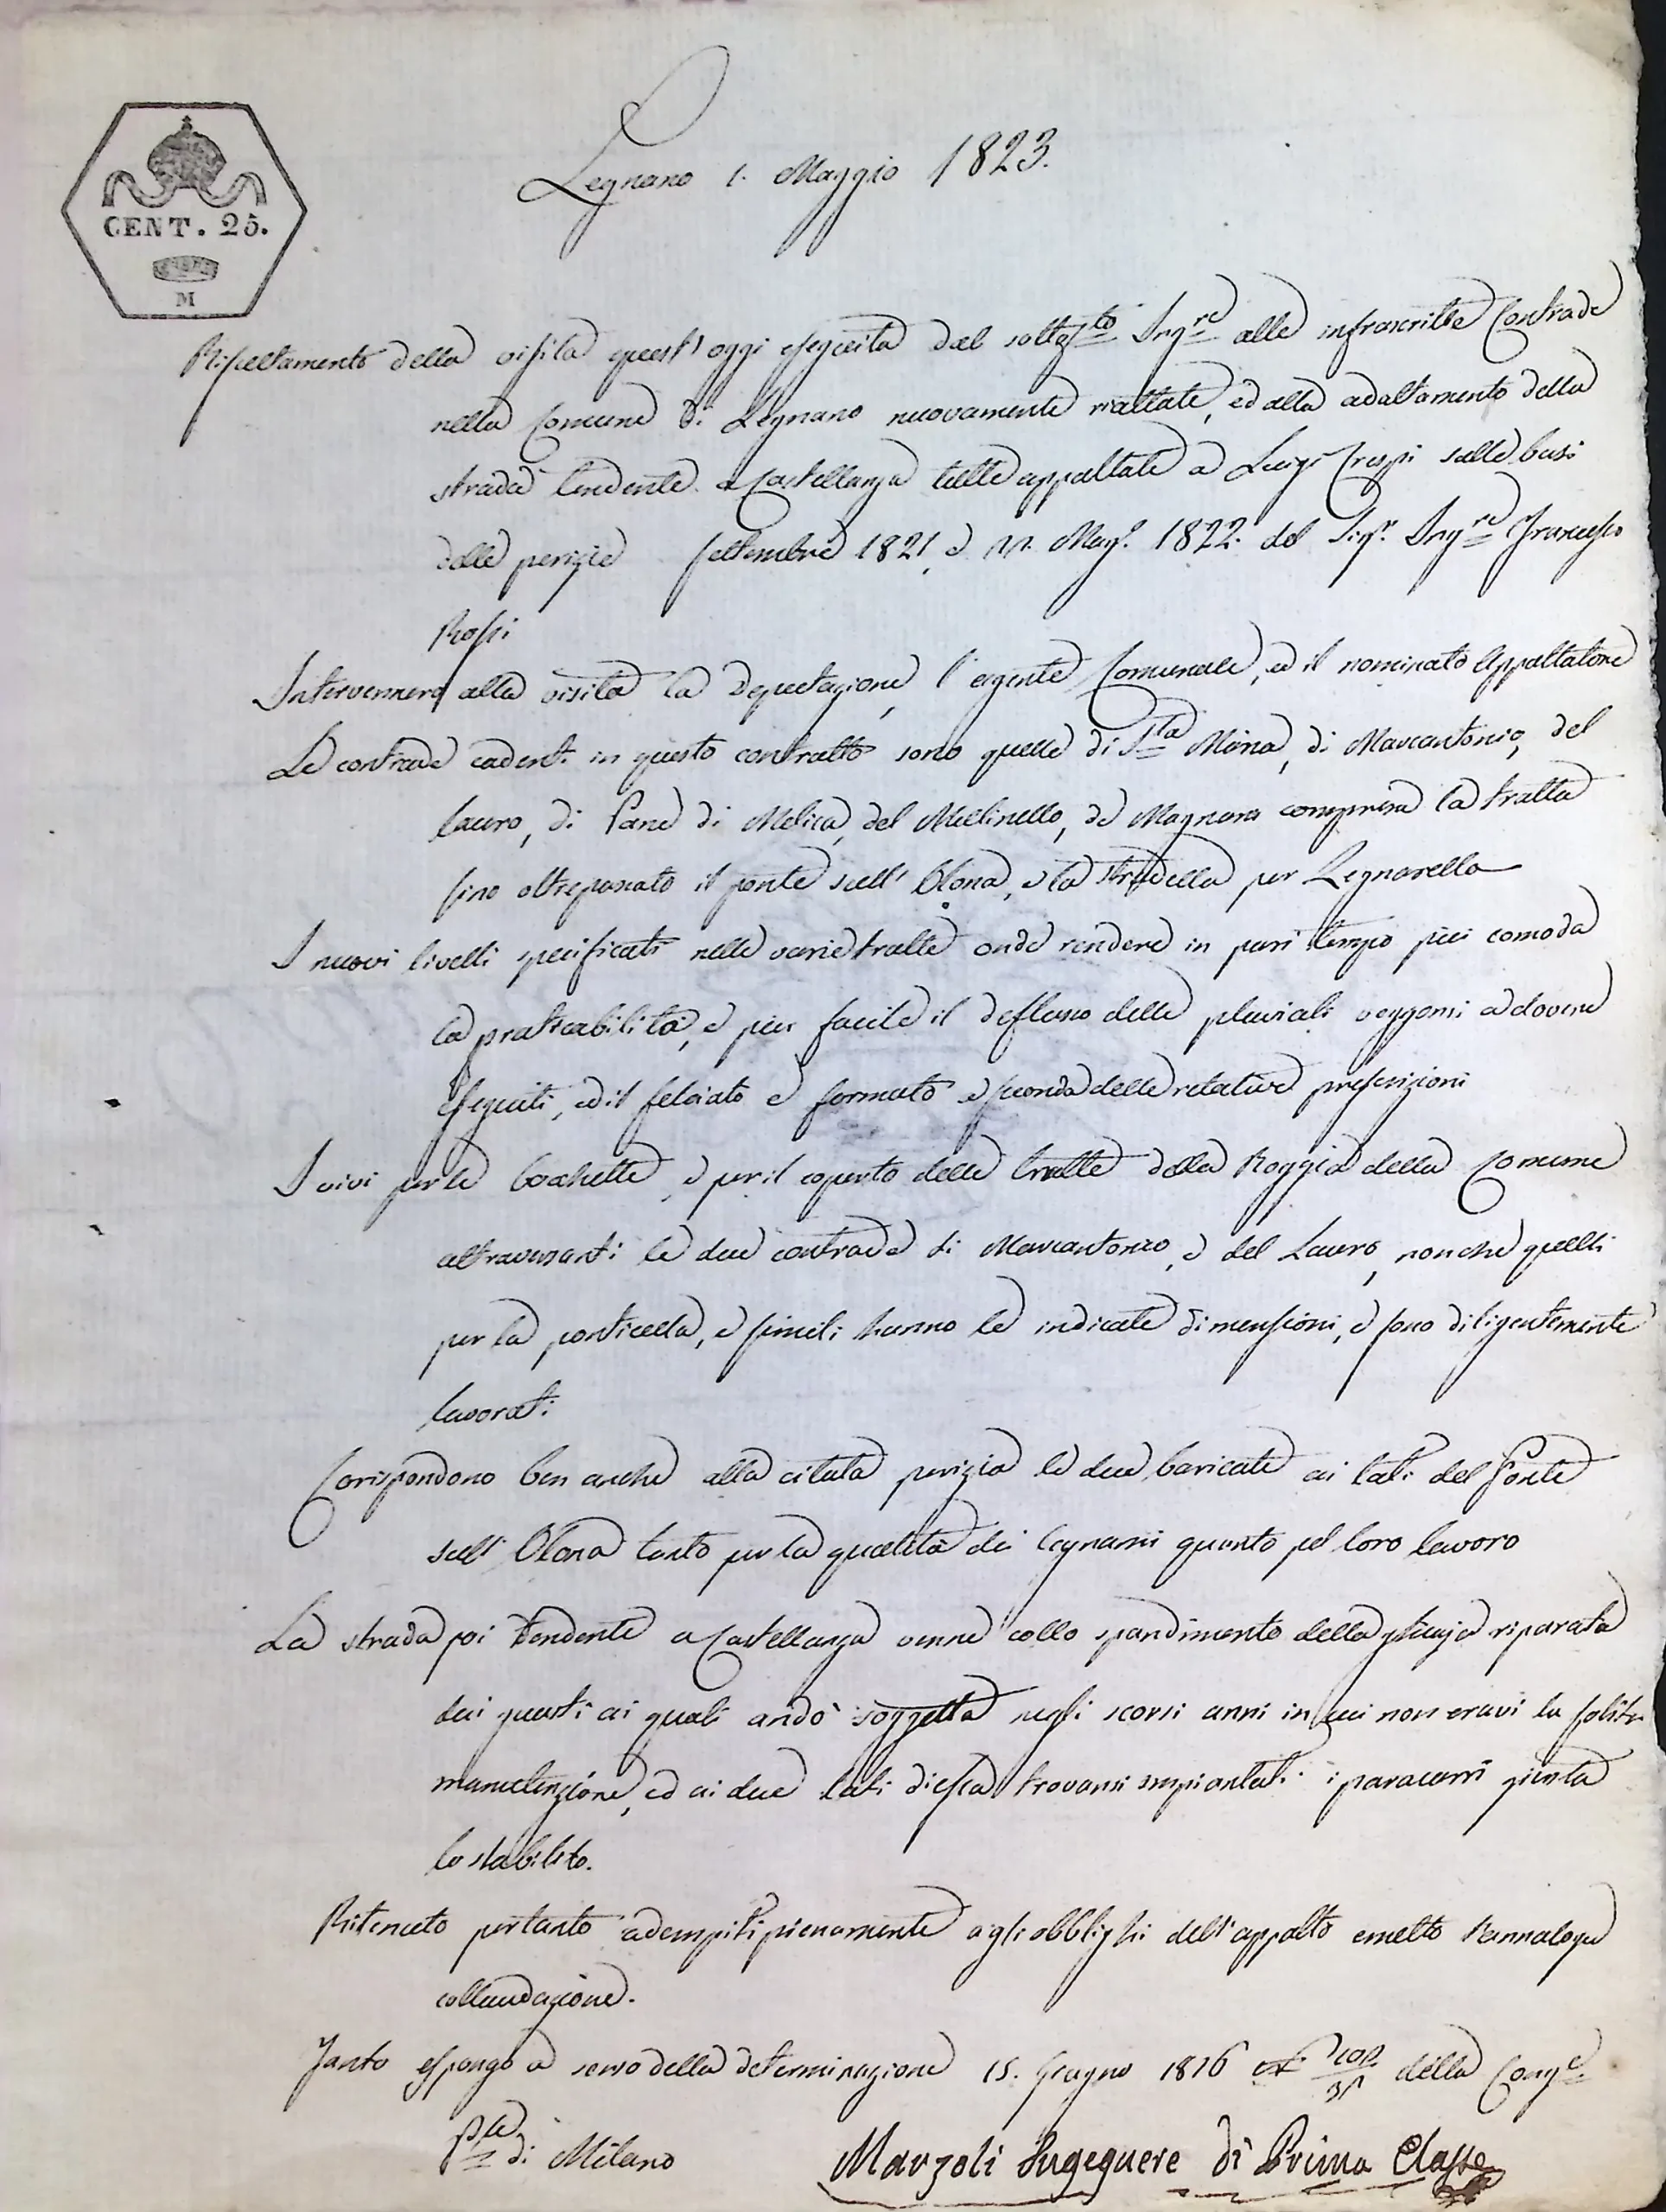 Legnano 1. Maggio 1823.
CENT. 25.
M
Risultamento della visita quest'oggi eseguita dal sottoto Ingre alle infrascritte Contrade
nella Comune di Legnano nuovamente riattate, ed alla adattamento della
strada tendente a Castellanza tutte appaltate a Luigi Crespi sulle basi
delle perizie settembre 1821, e Mago. 1822. del Sigr. Ingre Francesco
Rossi
Intervennero alla visita la Deputazione, l'agente Comunale, ed il nominato Appaltatore
Le contrade cadenti in questo contratto sono quelle di Sta Maria, di Marcantonio, del
Lauro, di Pane di Melica, del Mulinello, di Magnano compresa la tratta
sino oltrepassato il ponte sull'Olona, e la stradella per Legnarello
I nuovi livelli specificati nelle varie tratte onde rendere in pari tempo più comoda
la praticabilità, e più facile il deflusso delle pluviali veggonsi a dovere
eseguiti, ed il selciato è formato a seconda delle relative prescrizioni
I vivi per le bochette, e per il coperto delle tratte della Roggia della Comune
attraversanti le due contrade di Marcantonio, e del Lauro, nonche quelli
per la ponticella, e simili hanno le indicate dimensioni, e sono diligentemente
lavorati
Corispondono ben anche alla citata perizia le due baricate ai lati del Ponte
sull'Olona tanto per la qualità dei legnami quanto pel loro lavoro
La strada poi tendente a Castellanza venne collo spandimento della ghiaja riparata
dai guasti ai quali andò soggetta negli scorsi anni in cui non eravi la solita
manutenzione, ed ai due lati di essa trovansi impiantati i paracarri giusta
lo stabilito.
Ritenuto pertanto adempiti pienamente agli obblighi dell'appalto emetto l'annaloga
collaudazione.
Tanto espongo a senso della determinazione 15. Giugno 1816 della Conge
Ple di Milano
Marzoli Ingegnere di Prima Classe